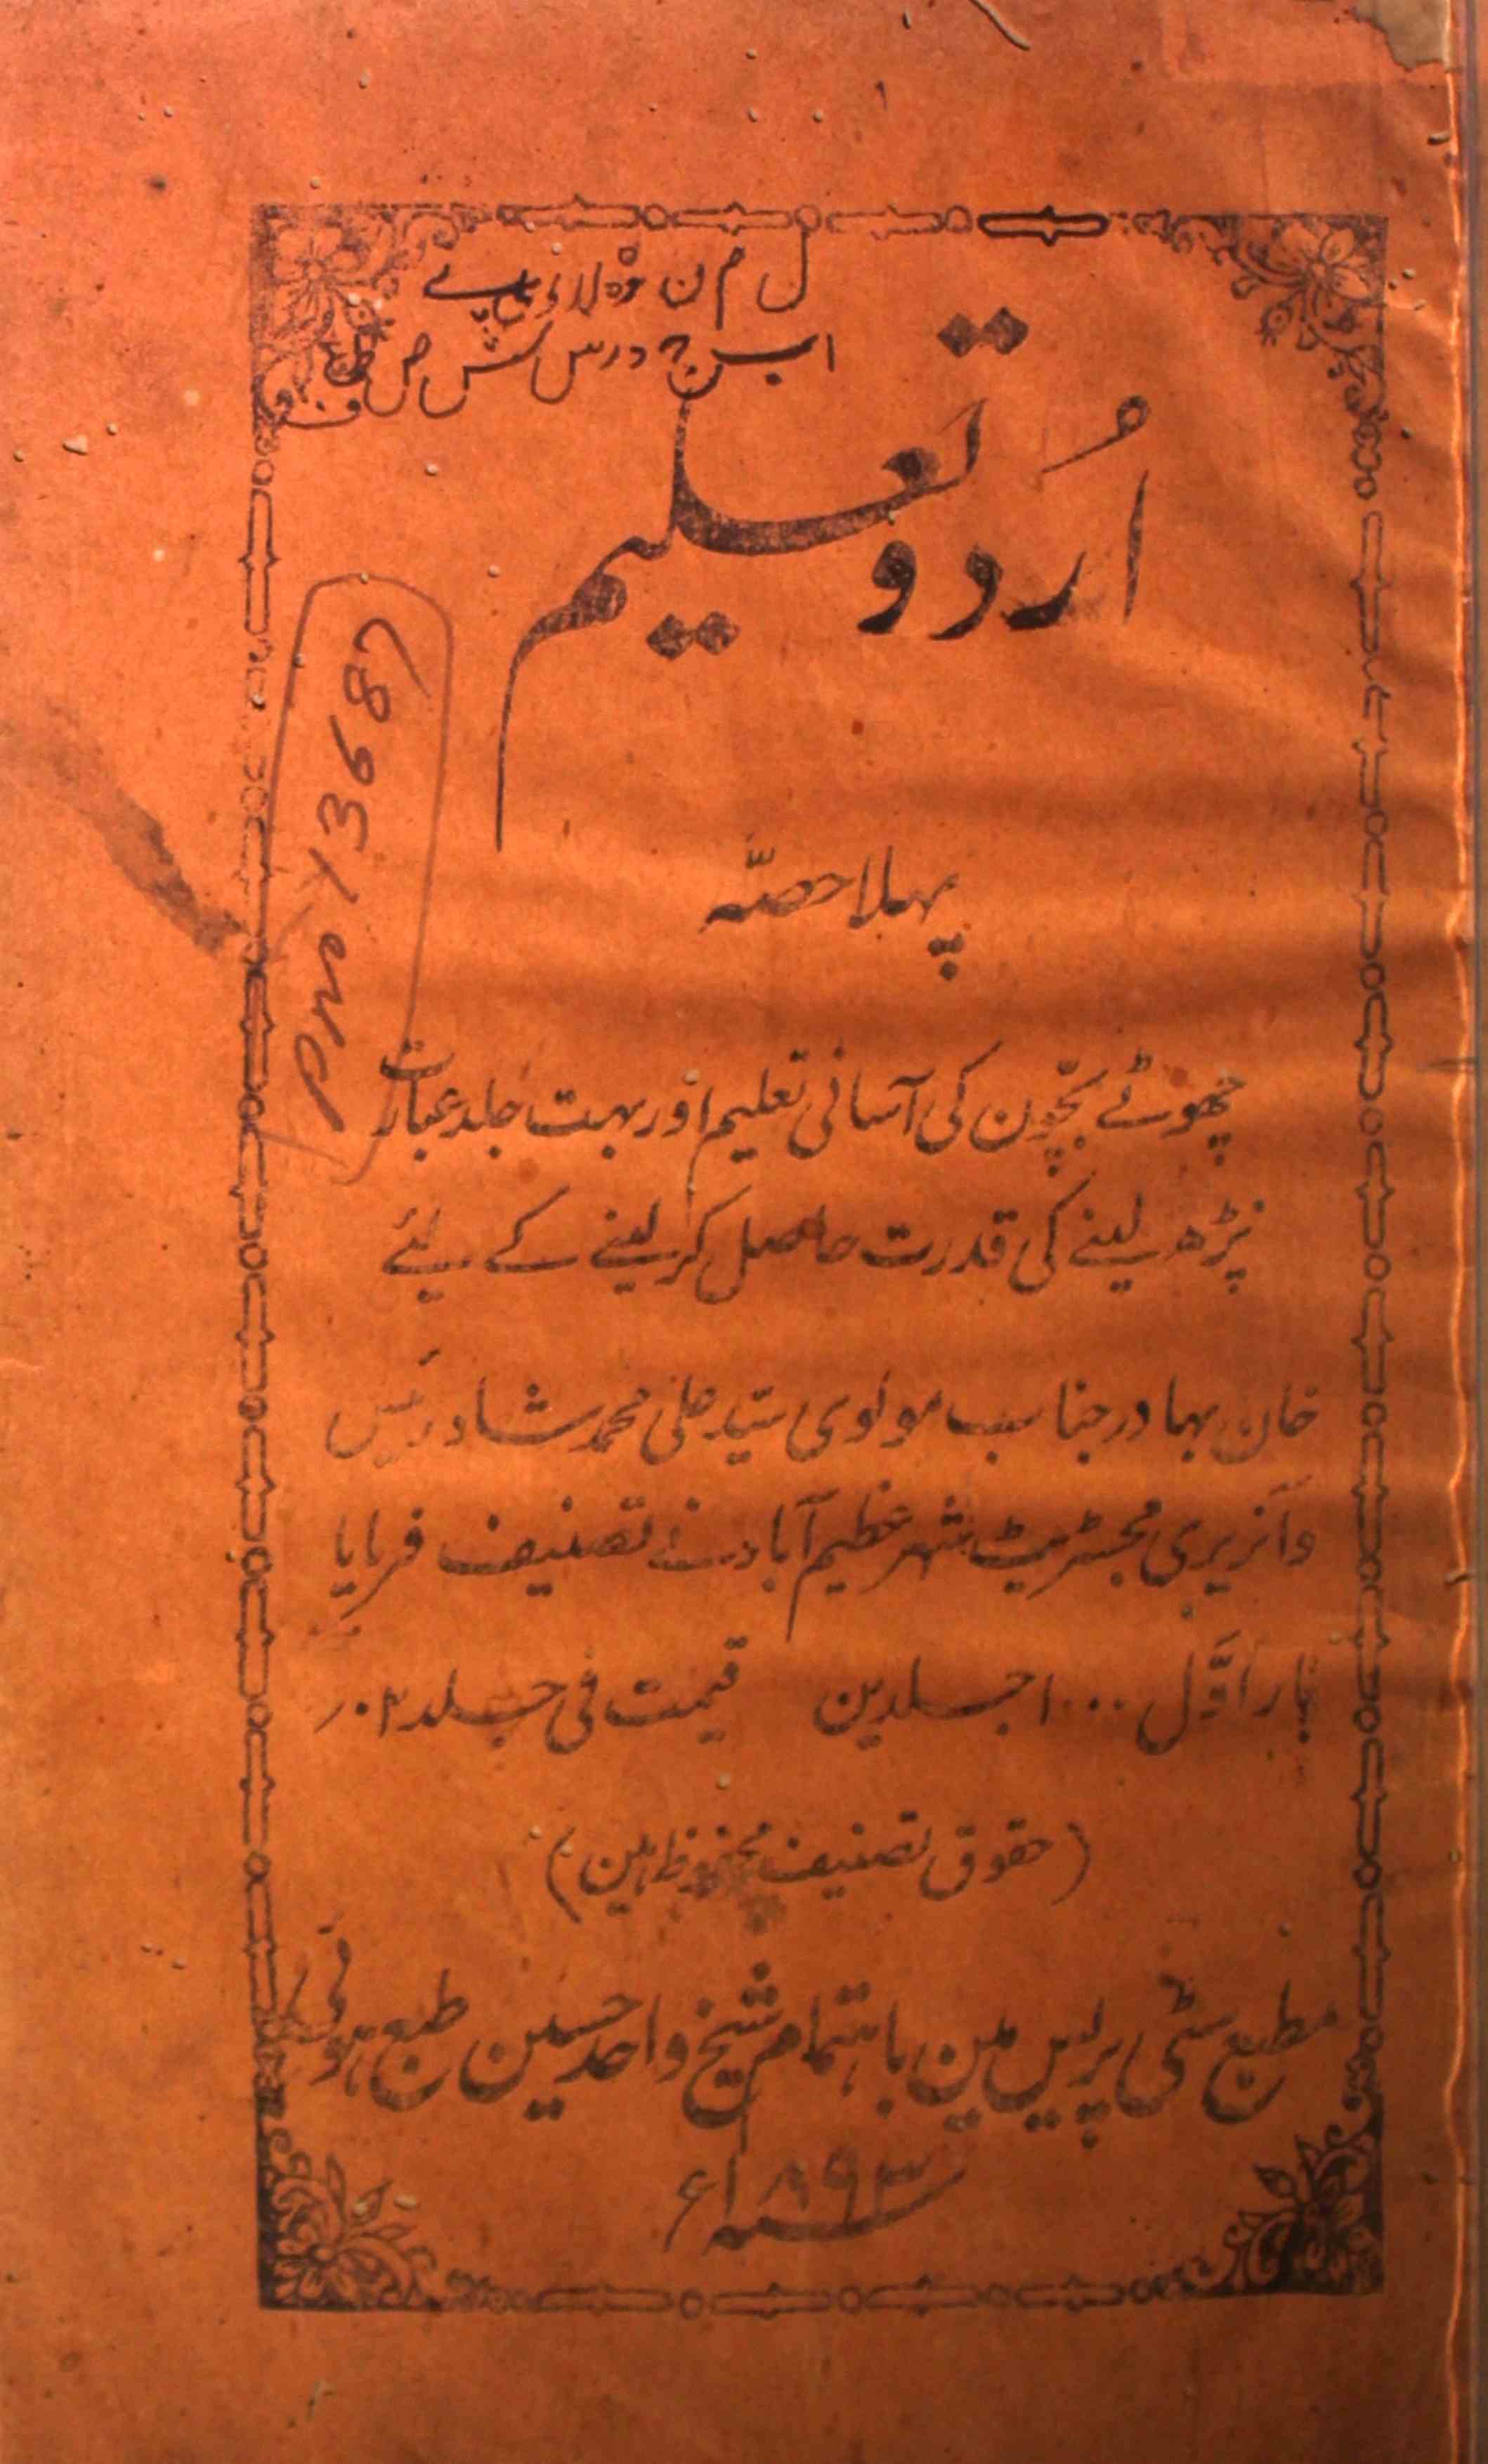 ل م ن و ہ لا ء ی ے
ا ب ج د ر س ش ص ط ع ف
اُردو تعلیم
پہلا حصّہ
چھوٹے بچّون کی آسانی تعلیم اور بہت جلد عبارت
پڑھ لینے کی قدرت حاصل کر لینے کے لئے
خان بہادر جناب مولوی سیّد علی محمد شاد رئیس
و آنریری مجسٹریٹ شہر عظیم آباد نے تصنیف فرمایا
بار اوّل ۱۰۰۰ جلدین قیمت فی جلد ۰۲ر
(حقوق تصنیف محفوظ ہین)
مطبع سٹی پریس مین باہتمام شیخ واحد حسین طبع ہوئی
سنہ ۱۸۹۳ء
13687